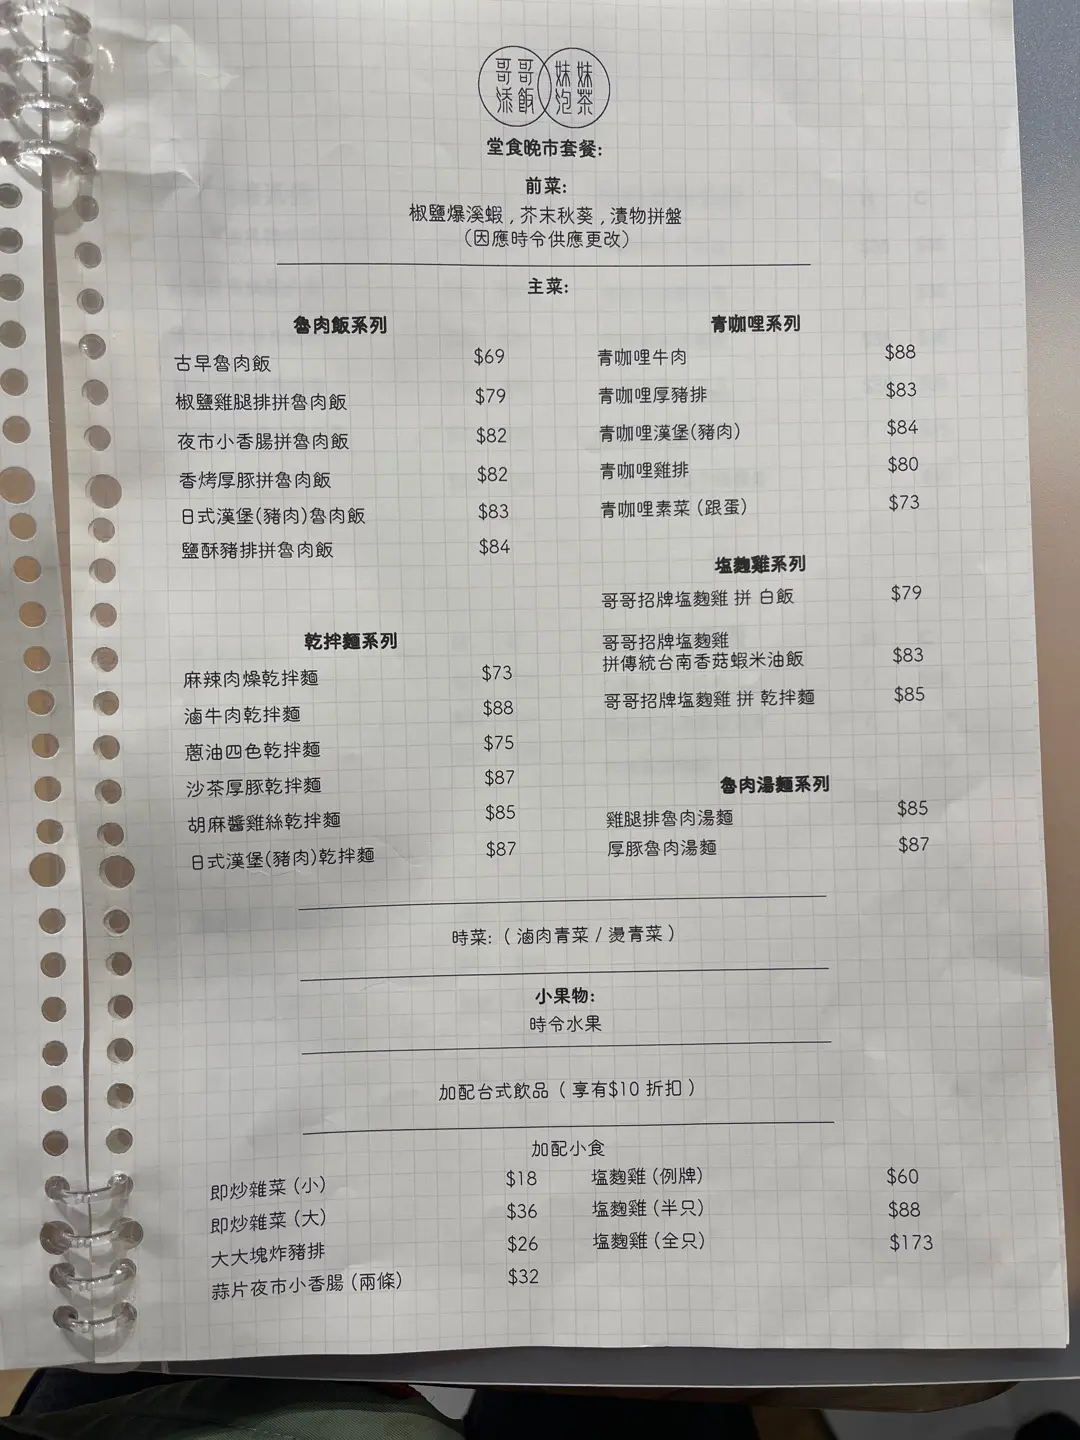 哥哥 妹妹
添飯 泡茶
堂食晚市套餐:
前菜:
椒鹽爆溪蝦 , 芥末秋葵 , 漬物拼盤
（因應時令供應更改）
主菜:
魯肉飯系列
古早魯肉飯 $69
椒鹽雞腿排拼魯肉飯 $79
夜市小香腸拼魯肉飯 $82
香烤厚豚拼魯肉飯 $82
日式漢堡(豬肉)魯肉飯 $83
鹽酥豬排拼魯肉飯 $84
乾拌麵系列
麻辣肉燥乾拌麵 $73
滷牛肉乾拌麵 $88
蔥油四色乾拌麵 $75
沙茶厚豚乾拌麵 $87
胡麻醬雞絲乾拌麵 $85
日式漢堡(豬肉)乾拌麵 $87
青咖哩系列
青咖哩牛肉 $88
青咖哩厚豬排 $83
青咖哩漢堡(豬肉) $84
青咖哩雞排 $80
青咖哩素菜 (跟蛋) $73
塩麴雞系列
哥哥招牌塩麴雞 拼 白飯 $79
哥哥招牌塩麴雞
拼傳統台南香菇蝦米油飯 $83
哥哥招牌塩麴雞 拼 乾拌麵 $85
魯肉湯麵系列
雞腿排魯肉湯麵 $85
厚豚魯肉湯麵 $87
時菜: ( 滷肉青菜 / 燙青菜 )
小果物:
時令水果
加配台式飲品 ( 享有$10 折扣 )
加配小食
即炒雜菜 (小) $18
即炒雜菜 (大) $36
大大塊炸豬排 $26
蒜片夜市小香腸 (兩條) $32
塩麴雞 (例牌) $60
塩麴雞 (半只) $88
塩麴雞 (全只) $173